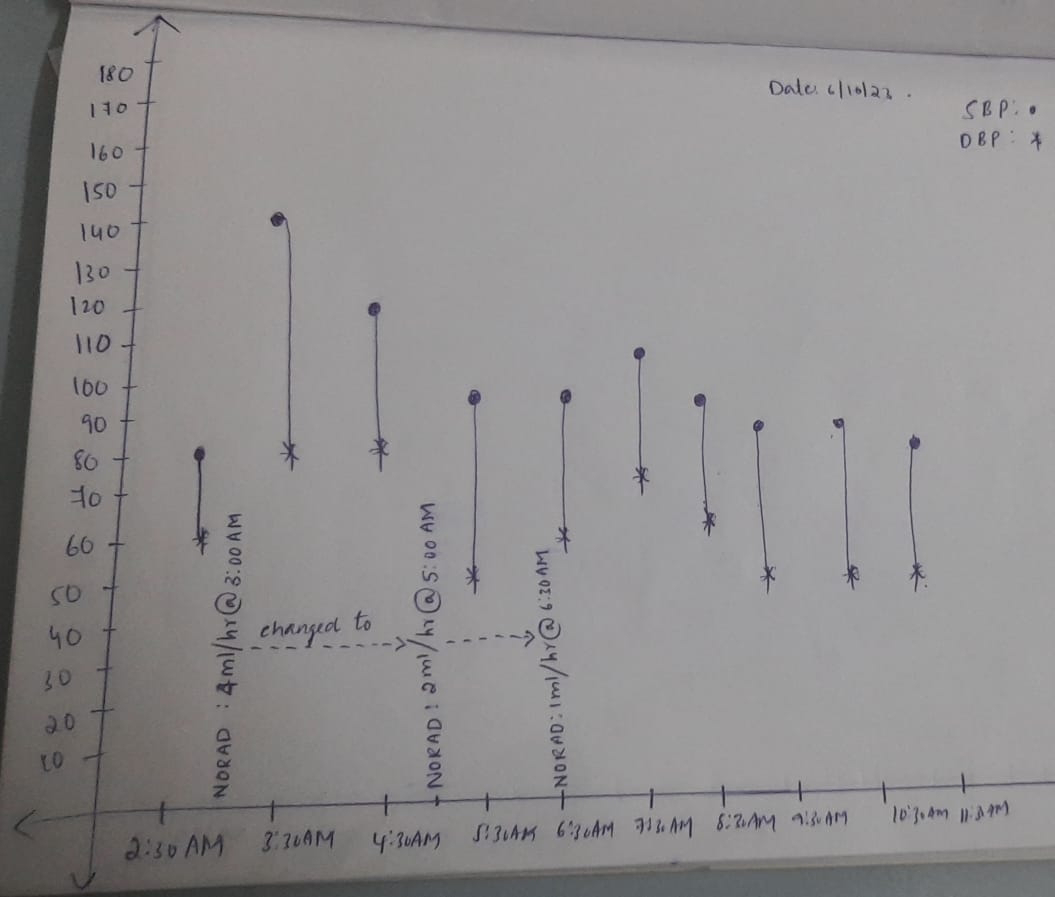 Date: 6/10/23.
SBP: •
DBP: *
180
170
160
150
140
130
120
110
100
90
80
70
60
50
40
30
20
10
NORAD : 4ml/hr@3:00AM
changed to
NORAD: 2ml/hr@5:00AM
NORAD: 1ml/hr@6:30AM
2:30AM 3:30AM 4:30AM 5:30AM 6:30AM 7:30AM 8:30AM 9:30AM 10:30AM 11:30AM